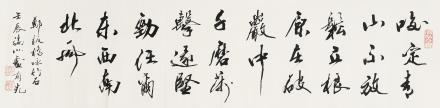 咬定青
山不放
鬆立根
原在破
巖中
千磨萬
擊還堅
勁任爾
東西南
北風
鄭板橋詠竹石
壬辰